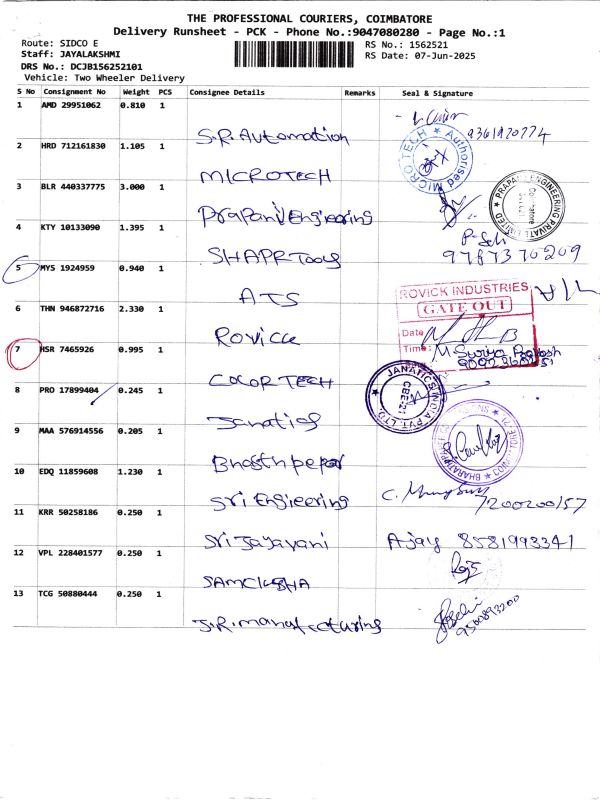 THE PROFESSIONAL COURIERS, COIMBATORE
Delivery Runsheet - PCK - Phone No.:9047080280 - Page No.:1
Route: SIDCO E
RS No.: 1562521
Staff: JAYALAKSHMI
RS Date: 07-Jun-2025
DRS No.: DCJB156252101
Vehicle: Two Wheeler Delivery
S No Consignment No Weight PCS Consignee Details Remarks Seal & Signature
1 AMD 29951062 0.810 1
S.R. Automation 9361920774
2 HRD 712161830 1.105 1
MICROTECH
MICRO TECH ★ Authorised
3 BLR 440337775 3.000 1
Prapani Engineering
PRAPANI ENGINEERING PRIVATE LIMITED
4 KTY 10133090 1.395 1
SHAPR Tools 9787370209
5 MYS 1924959 0.940 1
ATS
6 THN 946872716 2.330 1
Rovick
ROVICK INDUSTRIES
GATE OUT
Date
Time:
7 HSR 7465926 0.995 1
COLOR TECH
8 PRO 17899404 0.245 1
Janatics
JANATICS INDIA PVT. LTD.
CBE-21
9 MAA 576914556 0.205 1
10 EDQ 11859608 1.230 1
Sri Engineering 7200200157
11 KRR 50258186 0.250 1
Sri Jayavani Ajay 8581993341
12 VPL 228401577 0.250 1
13 TCG 50880444 0.250 1
J.R. manufacturing